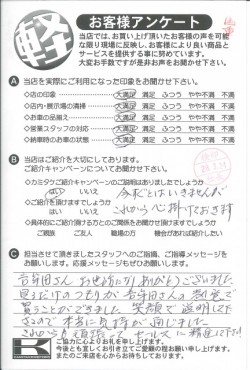 軽
お客様アンケート
当店では、お買い上げ頂いたお客様の声を可能な
限り現場に反映し、お客様により良い商品と
サービスを提供する事に努めています。
大変お手数ですが是非お声をお聞かせ下さい。
A 当店を実際にご利用になった印象をお聞かせ下さい。
◇店の印象 大満足 満足 ふつう やや不満 不満
◇店内・展示場の清掃 大満足 満足 ふつう やや不満 不満
◇お車の品揃え 大満足 満足 ふつう やや不満 不満
◇営業スタッフの対応 大満足 満足 ふつう やや不満 不満
◇納車時のお車の状態 大満足 満足 ふつう やや不満 不満
B 当店はご紹介を大切にしております。
ご紹介キャンペーンについてお聞かせ下さい。
◇カミタケご紹介キャンペーンのご説明はありましたでしょうか
はい いいえ 今すぐとはいきませんが
◇ご紹介を頂けますでしょうか
はい いいえ これから心掛けておきます
◇具体的にご紹介頂ける方との関係をお聞かせ頂けますでしょうか
ご家族 ご友人 職場の方 機会があれば紹介したい
C 担当させて頂きましたスタッフへのご指摘、ご指導メッセージを
お願いします。応援メッセージもぜひお願いします。
お世話になりありがとうございました
見るだけのつもりが
買うことができました 笑顔で説明して下
さるので本当に気持が
これからも頑張って
ご協力に心よりお礼を申し上げます。
今後とも宜しくお引き立てご愛顧の程お願い申し上げます。
またのご来店を心からお待ちしております。